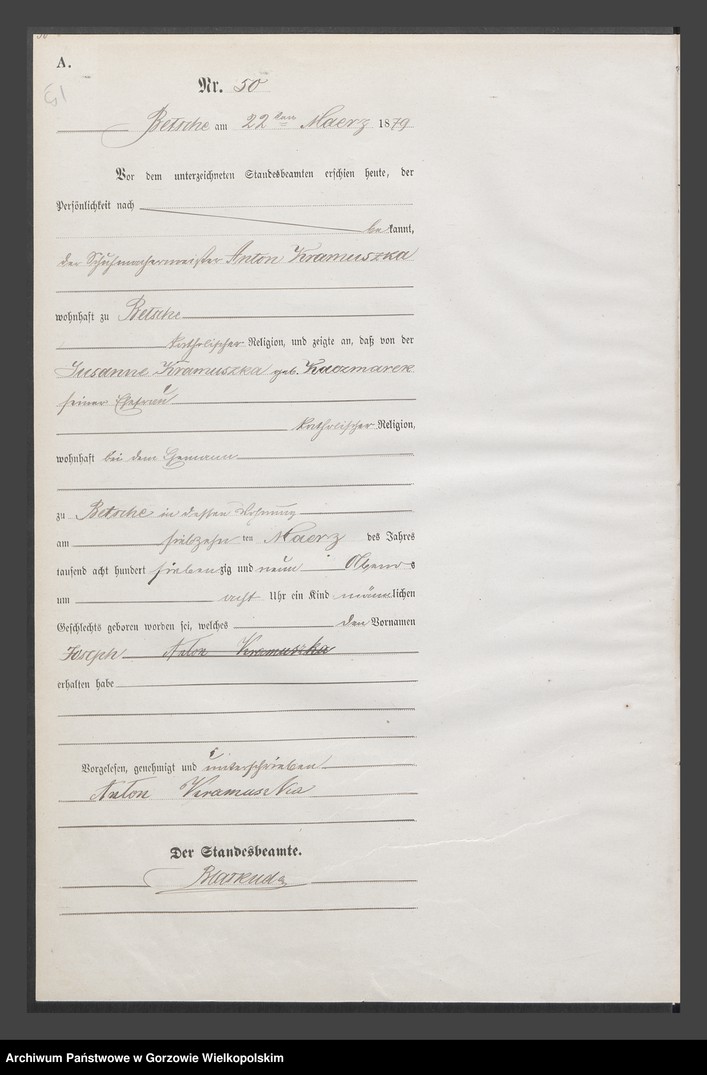 A.
Nr. 50
Betsche am 22 ten Maerz 1879
Vor dem unterzeichneten Standesbeamten erschien heute, der
Persönlichkeit nach
bekannt,
der Schuhmachermeister Anton Kramuszka
wohnhaft zu Betsche
katholischer Religion, und zeigte an, daß von der
Susanne Kramuszka geb. Kaczmarek
seiner Ehefrau
katholischer Religion,
wohnhaft bei dem Ehemann
zu Betsche in dessen Wohnung
am siebzehn ten Maerz des Jahres
tausend acht hundert siebenzig und neun Abends
um acht Uhr ein Kind männlichen
Geschlechts geboren worden sei, welches den Vornamen
Joseph Anton Kramuszka
erhalten habe
Vorgelesen, genehmigt und unterschrieben
Anton Kramuszka
Der Standesbeamte.
Archiwum Państwowe w Gorzowie Wielkopolskim